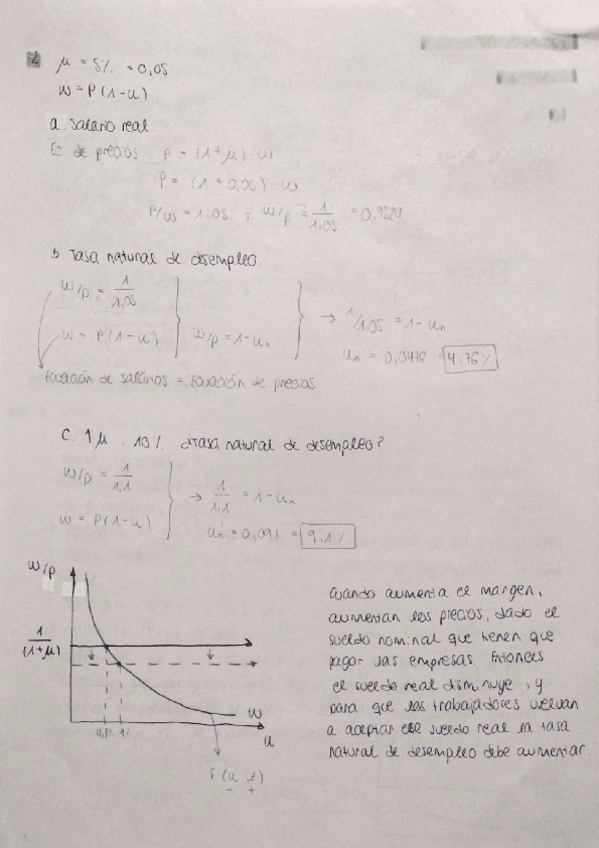 2
μ = 5% = 0,05
W = P(1-u)
a. Salario real.
Ec de precios: P = (1+μ) · W
P = (1+0,05) · W
P/W = 1,05 ; W/P = 1/1,05 = 0,9524
b. Tasa natural de desempleo
W/P = 1/1,05
→ 1/1,05 = 1-uₙ
W = P(1-u) W/P = 1-uₙ
uₙ = 0,0476 = 4,76%
Ecuación de salarios = Ecuación de precios
C. ↑μ : 10% ¿Tasa natural de desempleo?
W/P = 1/1,1
→ 1/1,1 = 1-uₙ
W = P(1-u)
uₙ' = 0,091 = 9,1%
W/P
1/(1+μ)
W
u
F(u, z)
- +
Cuando aumenta el margen,
aumentan los precios, dado el
sueldo nominal que tienen que
pagar las empresas. Entonces
el sueldo real disminuye, y
para que los trabajadores vuelvan
a aceptar ese sueldo real la tasa
natural de desempleo debe aumentar.